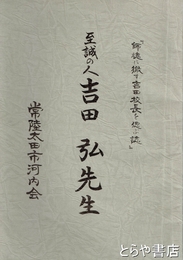 「師道に徹す吉田校長を偲ぶ誌」
至誠の人 吉田 弘先生
常陸太田市河内会
とらや書店